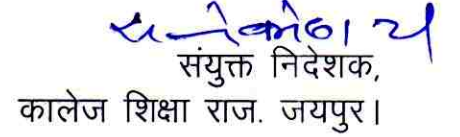 संयुक्त निदेशक,
कालेज शिक्षा राज. जयपुर।